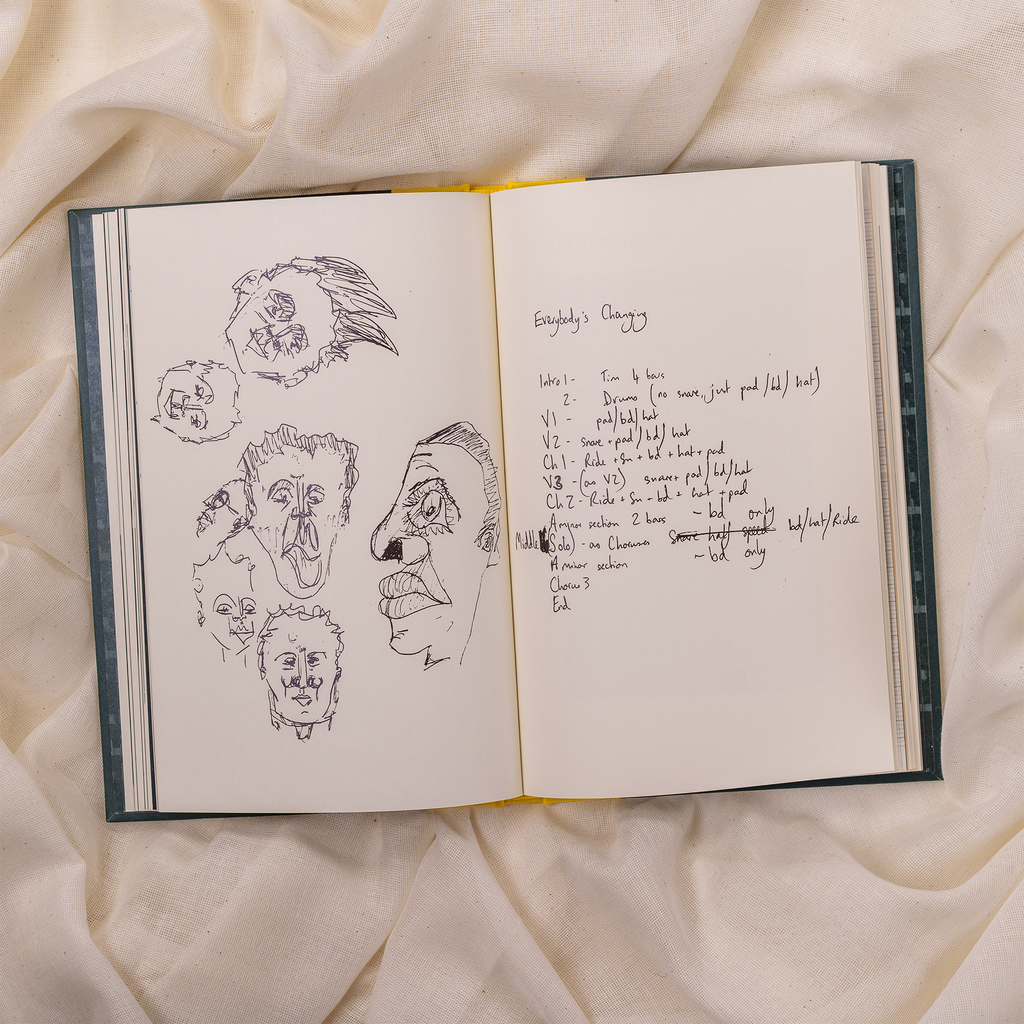 Everybody's Changing
Intro 1 - Tim 4 bars
2 - Drums (no snare, just pad/bd/hat)
V1 - pad/bd/hat
V2 - snare + pad/bd/hat
Ch 1 - Ride + sn + bd + hat + pad
V3 - (as V2) snare + pad/bd/hat
Ch 2 - Ride + sn - bd + hat + pad
Aminor section 2 bars - bd only
Middle (Solo) - as Choruses snare half speed bd/hat/Ride
A minor section - bd only
Chorus 3
End